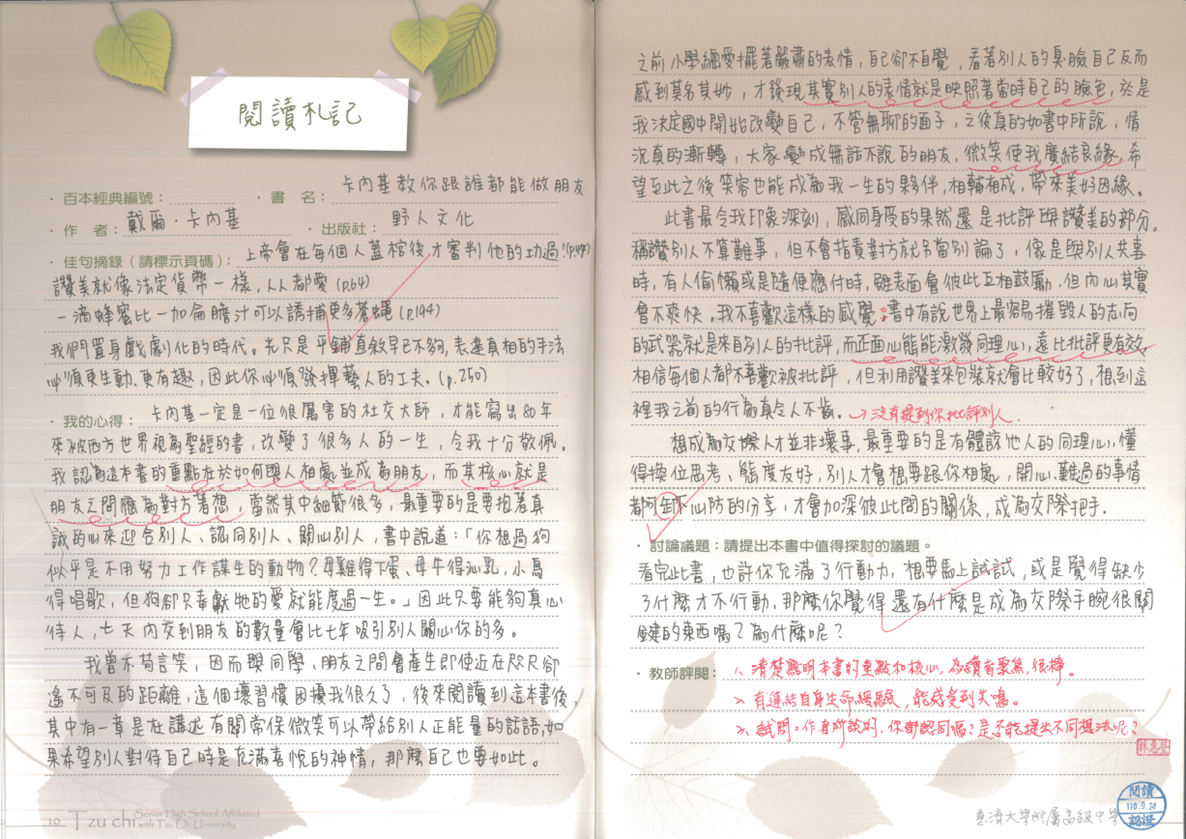 閱讀札記
・百本經典編號：
・書 名：卡內基教你跟誰都能做朋友
・作 者：戴爾・卡內基
・出版社：野人文化
・佳句摘錄（請標示頁碼）：上帝會在每個人蓋棺後才審判他的功過！(p.47)
讚美就像法定貨幣一樣，人人都愛 (p.64)
一滴蜂蜜比一加侖膽汁可以誘捕更多蒼蠅 (p.104)
我們置身戲劇化的時代。光只是平鋪直敘早已不夠，表達真相的手法
必須更生動、更有趣，因此你必須發揮藝人的工夫。(p.250)
・我的心得：卡內基一定是一位很厲害的社交大師，才能寫出80年
來被西方世界視為聖經的書，改變了很多人的一生，令我十分敬佩。
我認為這本書的重點在於如何與人相處並成為朋友，而其核心就是
朋友之間應為對方著想，當然其中細節很多，最重要的是要抱著真
誠的心來迎合別人、認同別人、關心別人，書中說道：「你想過狗
似乎是不用努力工作謀生的動物？母雞得下蛋、母牛得泌乳，小鳥
得唱歌，但狗卻只奉獻牠的愛就能度過一生。」因此只要能夠真心
待人，七天內交到朋友的數量會比七年吸引別人關心你的多。
我曾不苟言笑，因而與同學、朋友之間會產生即使近在咫尺卻
遙不可及的距離，這個壞習慣困擾我很久了，後來閱讀到這本書後，
其中有一章是在講述有關常保微笑可以帶給別人正能量的話語，如
果希望別人對待自己時是充滿喜悅的神情，那麼自己也要如此。
10 Tzu chi Senior High School Affiliated
with Tzu Chi University
之前小學總愛擺著嚴肅的表情，自己卻不自覺，看著別人的臭臉自己反而
感到莫名其妙，才發現其實別人的表情就是映照著當時自己的臉色，於是
我決定國中開始改變自己，不管無聊的面子，之後真的如書中所說，情
況真的漸轉，大家變成無話不說的朋友，微笑使我廣結良緣，希
望至此之後笑容也能成為我一生的夥伴，相輔相成，帶來美好因緣。
此書最令我印象深刻，感同身受的果然還是批評與讚美的部分。
稱讚別人不算難事，但不會指責對方就另當別論了，像是與別人共事
時，有人偷懶或是隨便應付時，雖表面會彼此互相鼓勵，但內心其實
會不爽快。我不喜歡這樣的感覺。書中有說世界上最容易摧毀人的志向
的武器就是來自別人的批評，而正面心態能激發同理心，遠比批評更有效，
相信每個人都不喜歡被批評，但利用讚美來包裝就會比較好了，想到這
裡我之前的行為真令人不齒。→沒有提到你批評別人
想成為交際人才並非壞事，最重要的是有體諒他人的同理心，懂
得換位思考、態度友好，別人才會想要跟你相處，開心、難過的事情
都可卸下心防的分享，才會加深彼此間的關係，成為交際把手。
・討論議題：請提出本書中值得探討的議題。
看完此書，也許你充滿了行動力，想要馬上試試，或是覺得缺少
了什麼才不行動，那麼你覺得還有什麼是成為交際手腕很關
鍵的東西嗎？為什麼呢？
・教師評閱：1、清楚點明本書的重點和核心，為讀者聚焦，很棒。
2、有連結自身生命經驗，能感受到共鳴。
3、試問：作者所說的，你都認同嗎？是否能提出不同想法呢？
慈濟大學附屬高級中學
閱讀
110.9.24
認證